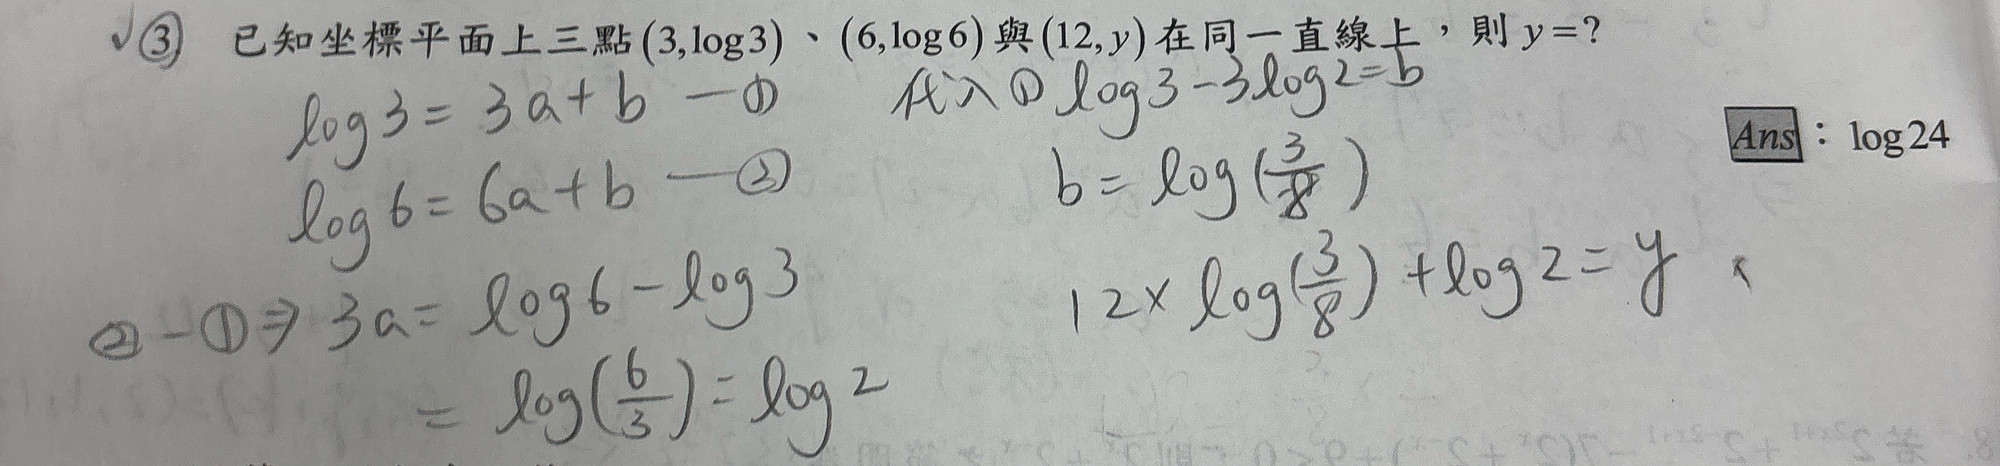 √③ 已知坐標平面上三點(3,log3)、(6,log6)與(12,y)在同一直線上，則y=?
Ans：log24
log3=3a+b—①
log6=6a+b—②
②-①⇒3a=log6-log3
=log(6/3)=log2
代入①log3-3log2=b
b=log(3/8)
12×log(3/8)+log2=y